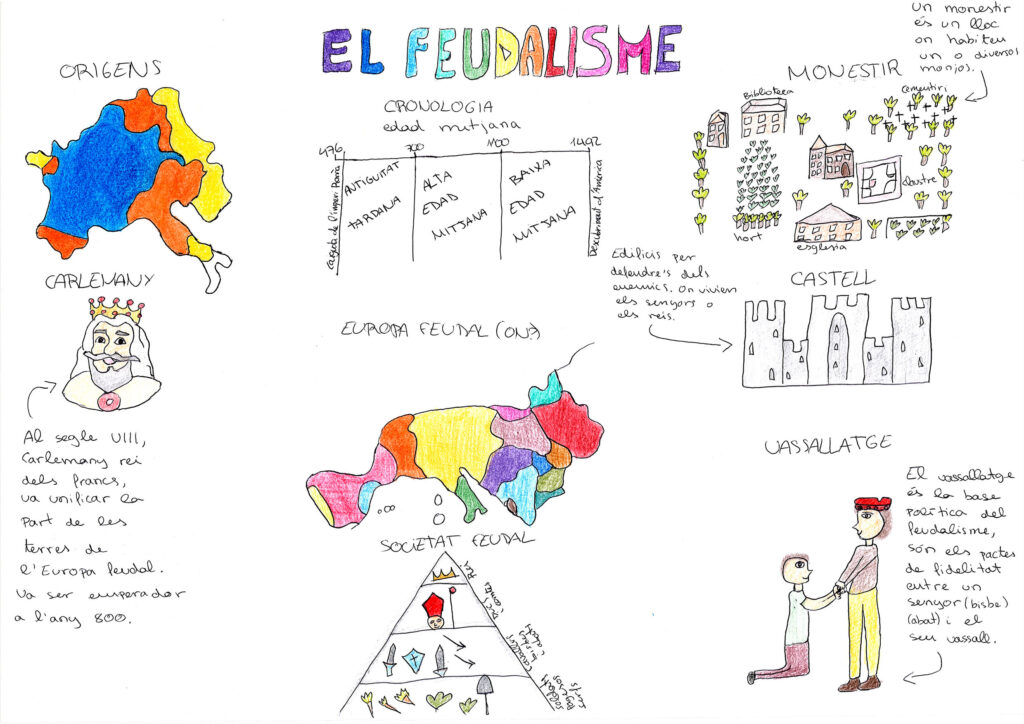 EL FEUDALISME
ORIGENS
CARLEMANY
Al segle VIII,
Carlemany rei
dels francs,
va unificar la
part de les
terres de
l'Europa feudal.
Va ser emperador
a l'any 800.
CRONOLOGIA
edad mitjana
476
700
1100
1492
Caiguda de l'imperi Romà
ANTIGUITAT
TARDANA
ALTA
EDAD
MITJANA
BAIXA
EDAD
MITJANA
Descobriment d'Amèrica
EUROPA FEUDAL (ON?)
SOCIETAT FEUDAL
Rei
Ducs
i comtes
Cavallers
bisbes
i abats
Soldats
Pagesos
Serfs
un monestir
és un lloc
on habiten
un o diversos
monjos.
MONESTIR
Biblioteca
Cementiri
claustre
hort
esglesia
Edificis per
defendre's dels
enemics. On vivien
els senyors o
els reis.
CASTELL
VASSALLATGE
El vassallatge
és la base
política del
feudalisme,
són els pactes
de fidelitat
entre un
senyor (bisbe)
(abat) i el
seu vassall.